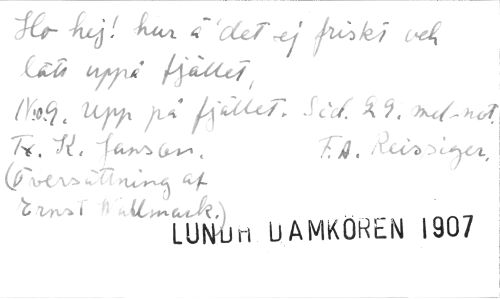 Ho hej! hur å det ej friskt och
lätt uppå fjället,
No. 9. Upp på fjället. Sid. 29. med not.
Tx. K. Janson. F.A. Reissiger.
(Översättning af
Ernst Wallmark.)
LUNDH DAMKÖREN 1907